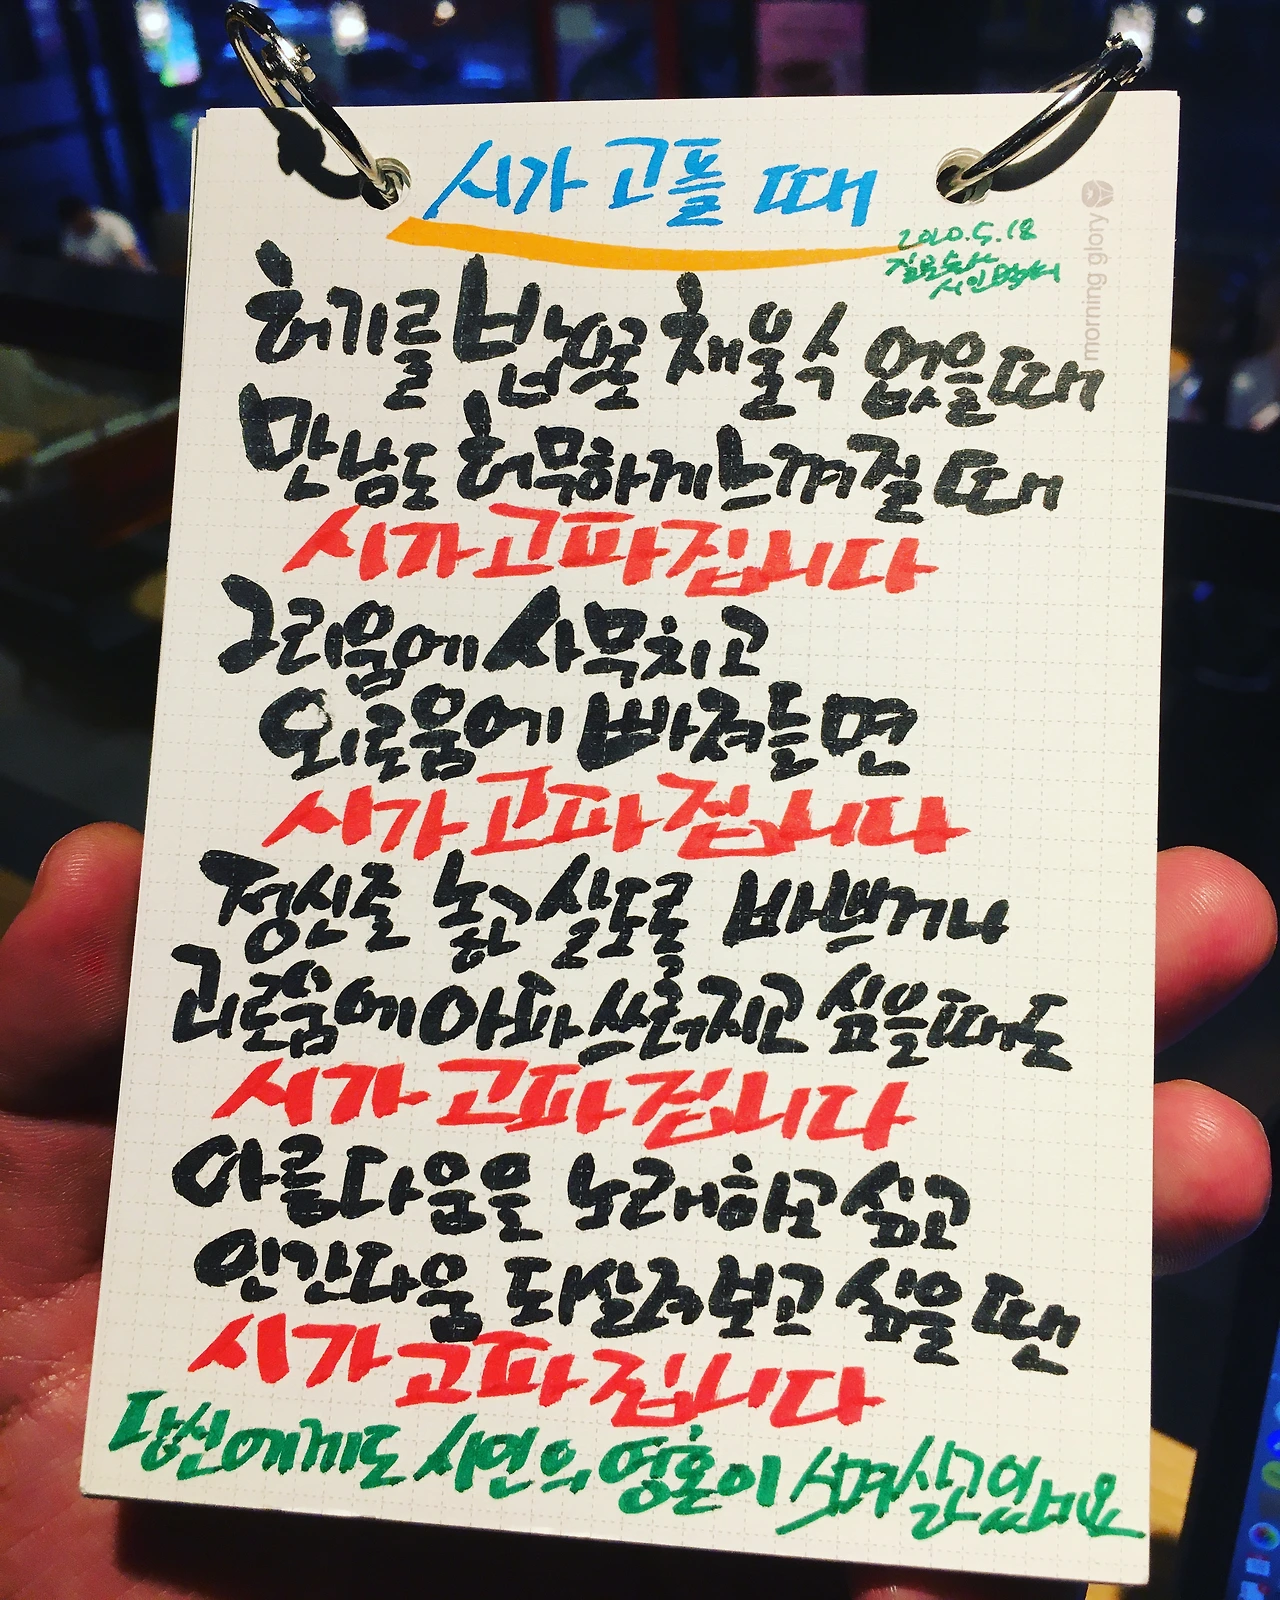 시가 고플 때
2020.5.18
morning glory
허기를 밥으로 채울 수 없을 때
만남도 허무하게 느껴질 때
시가 고파집니다
그리움에 사무치고
외로움에 빠져들면
시가 고파집니다
정신줄 놓고 살도록 바쁘거나
괴로움에 아파 쓰러지고 싶을 때도
시가 고파집니다
아름다움을 노래하고 싶고
인간다움 되살려보고 싶을 땐
시가 고파집니다
당신에게도 시인의 영혼이 숨겨